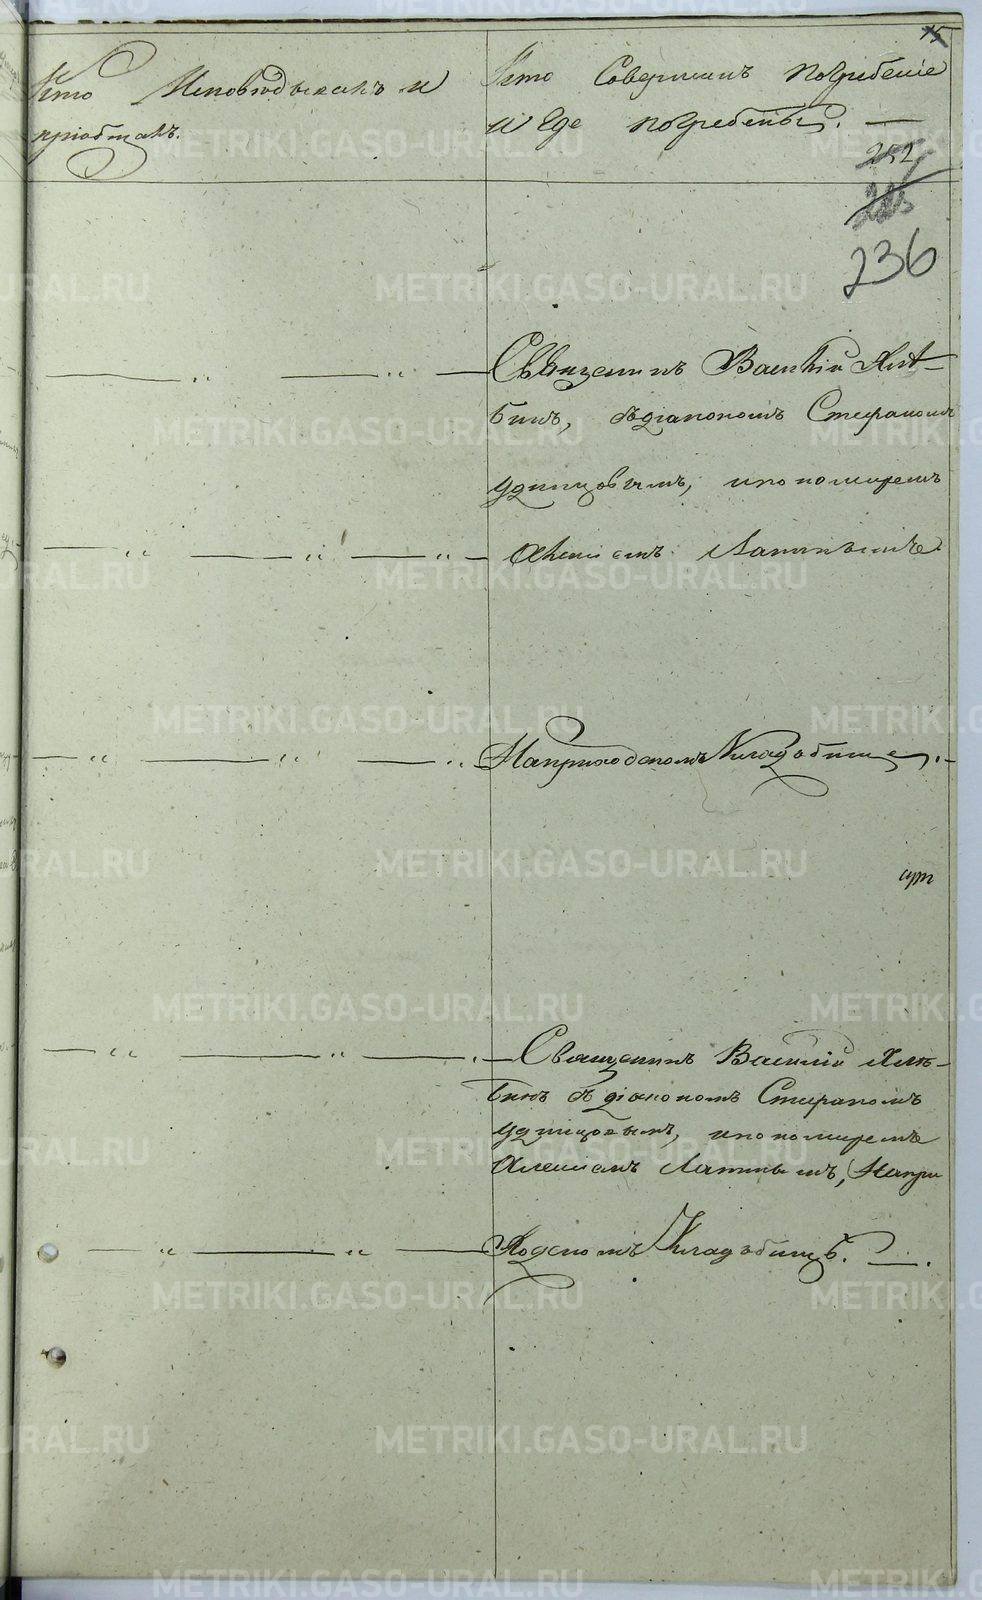 15
Кто Исповѣдывалъ и
пріобщалъ.
Кто Совершилъ погребеніе
и где погребены.
252
236
Священникъ Василій Хлѣ-
бинъ, съ діакономъ Стефаномъ
Удинцовымъ, и пономаремъ
Алексіемъ Латинымъ
На приходскомъ Кладбище.
Священникъ Василій Хлѣ-
бинъ съ діакономъ Стефаномъ
Удинцовымъ, и пономаремъ
Алексіемъ Латинымъ, На при
Ходскомъ Кладъбищѣ.
METRIKI.GASO-URAL.RU